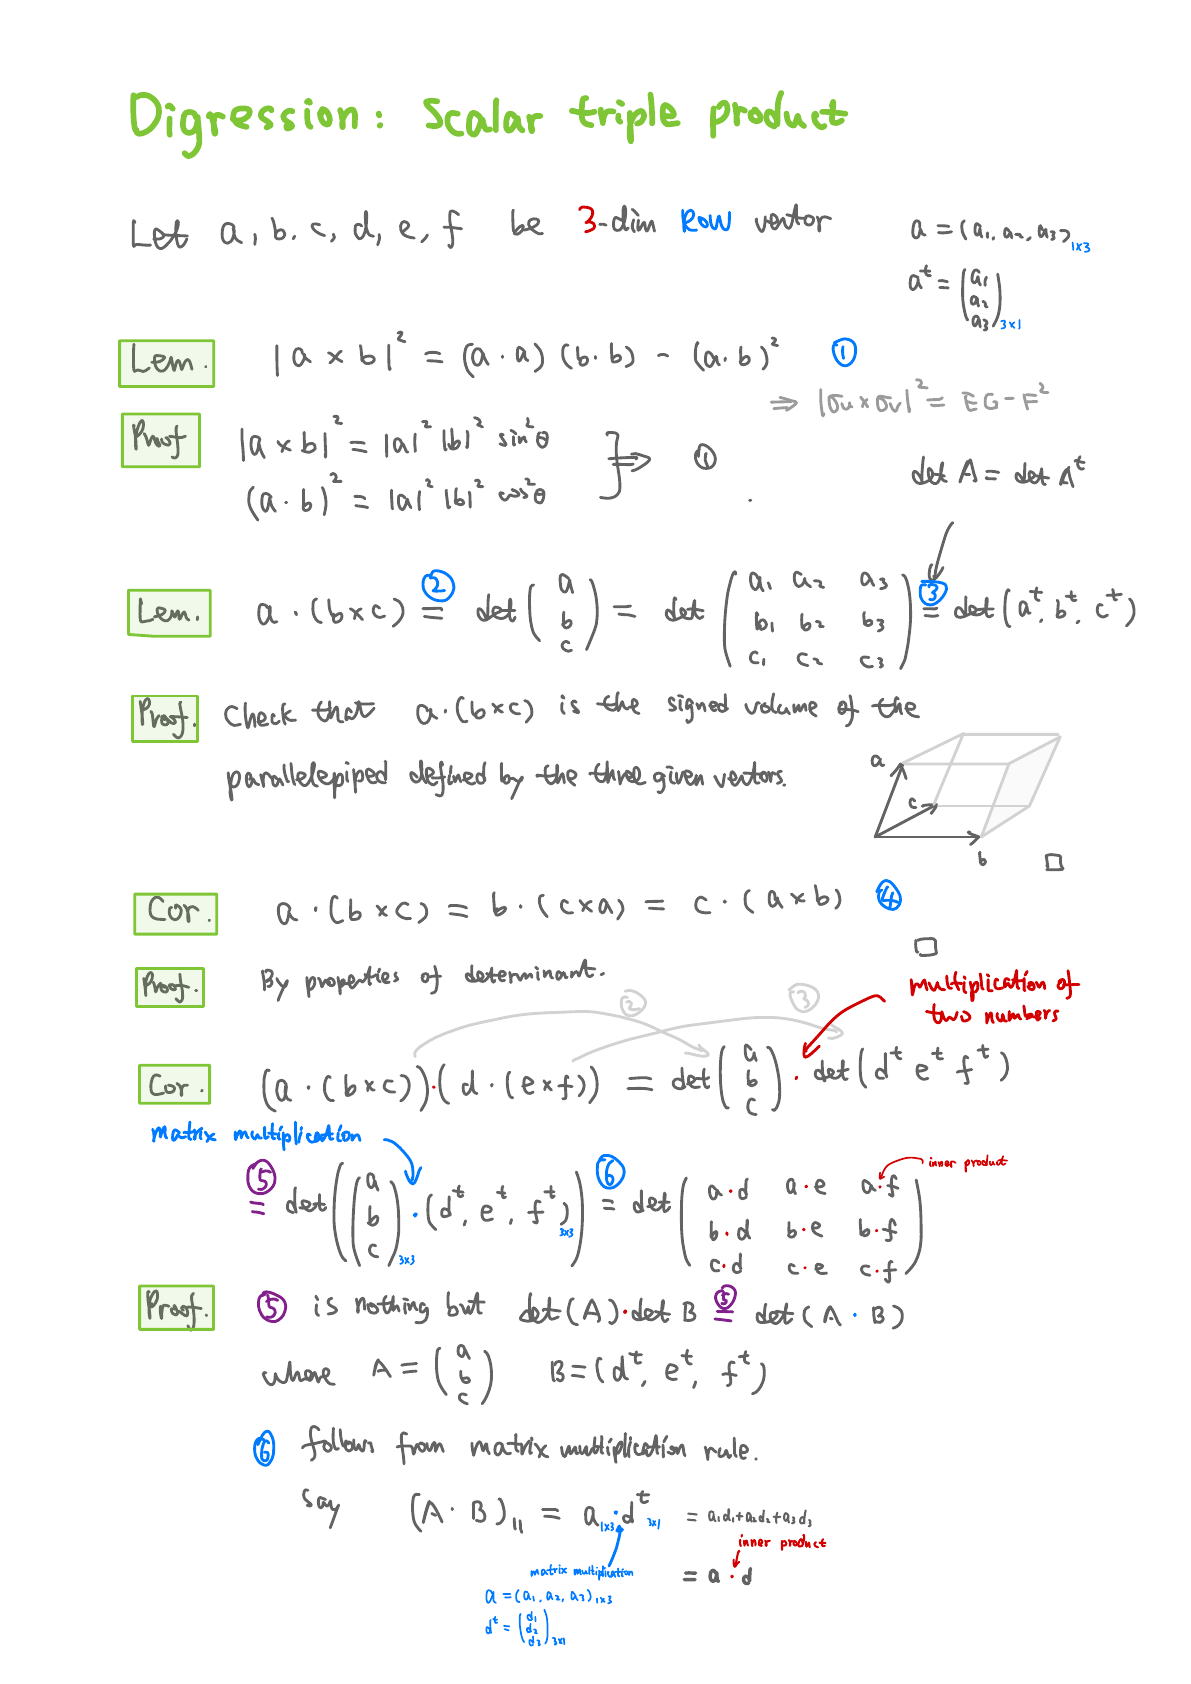 Digression: Scalar triple product
Let a, b, c, d, e, f be 3-dim Row vector
a = (a₁, a₂, a₃)₁ₓ₃
aᵗ = (a₁ a₂ a₃)₃ₓ₁
Lem. |a × b|² = (a · a)(b · b) − (a · b)² ①
⇒ |σu × σv|² = EG − F²
Proof |a × b|² = |a|² |b|² sin²θ
(a · b)² = |a|² |b|² cos²θ
⇒ ①
det A = det Aᵗ
Lem. a · (b × c) =② det (a b c) = det (a₁ a₂ a₃ b₁ b₂ b₃ c₁ c₂ c₃) =③ det (aᵗ, bᵗ, cᵗ)
Proof. Check that a · (b × c) is the signed volume of the
parallelepiped defined by the three given vectors.
a
c
b
□
Cor. a · (b × c) = b · (c × a) = c · (a × b) ④
□
Proof. By properties of determinant.
② ③
multiplication of
two numbers
Cor. (a · (b × c)) · (d · (e × f)) = det (a b c) · det (dᵗ eᵗ fᵗ)
matrix multiplication
=⑤ det ((a b c)₃ₓ₃ · (dᵗ, eᵗ, fᵗ)₃ₓ₃) =⑥ det (a·d a·e a·f b·d b·e b·f c·d c·e c·f)
inner product
Proof. ⑤ is nothing but det(A) · det B =⑤ det (A · B)
where A = (a b c) B = (dᵗ, eᵗ, fᵗ)
⑥ follows from matrix multiplication rule.
say (A · B)₁₁ = a₁ₓ₃ · dᵗ₃ₓ₁ = a₁d₁ + a₂d₂ + a₃d₃
inner product
= a · d
matrix multiplication
a = (a₁, a₂, a₃)₁ₓ₃
dᵗ = (d₁ d₂ d₃)₃ₓ₁